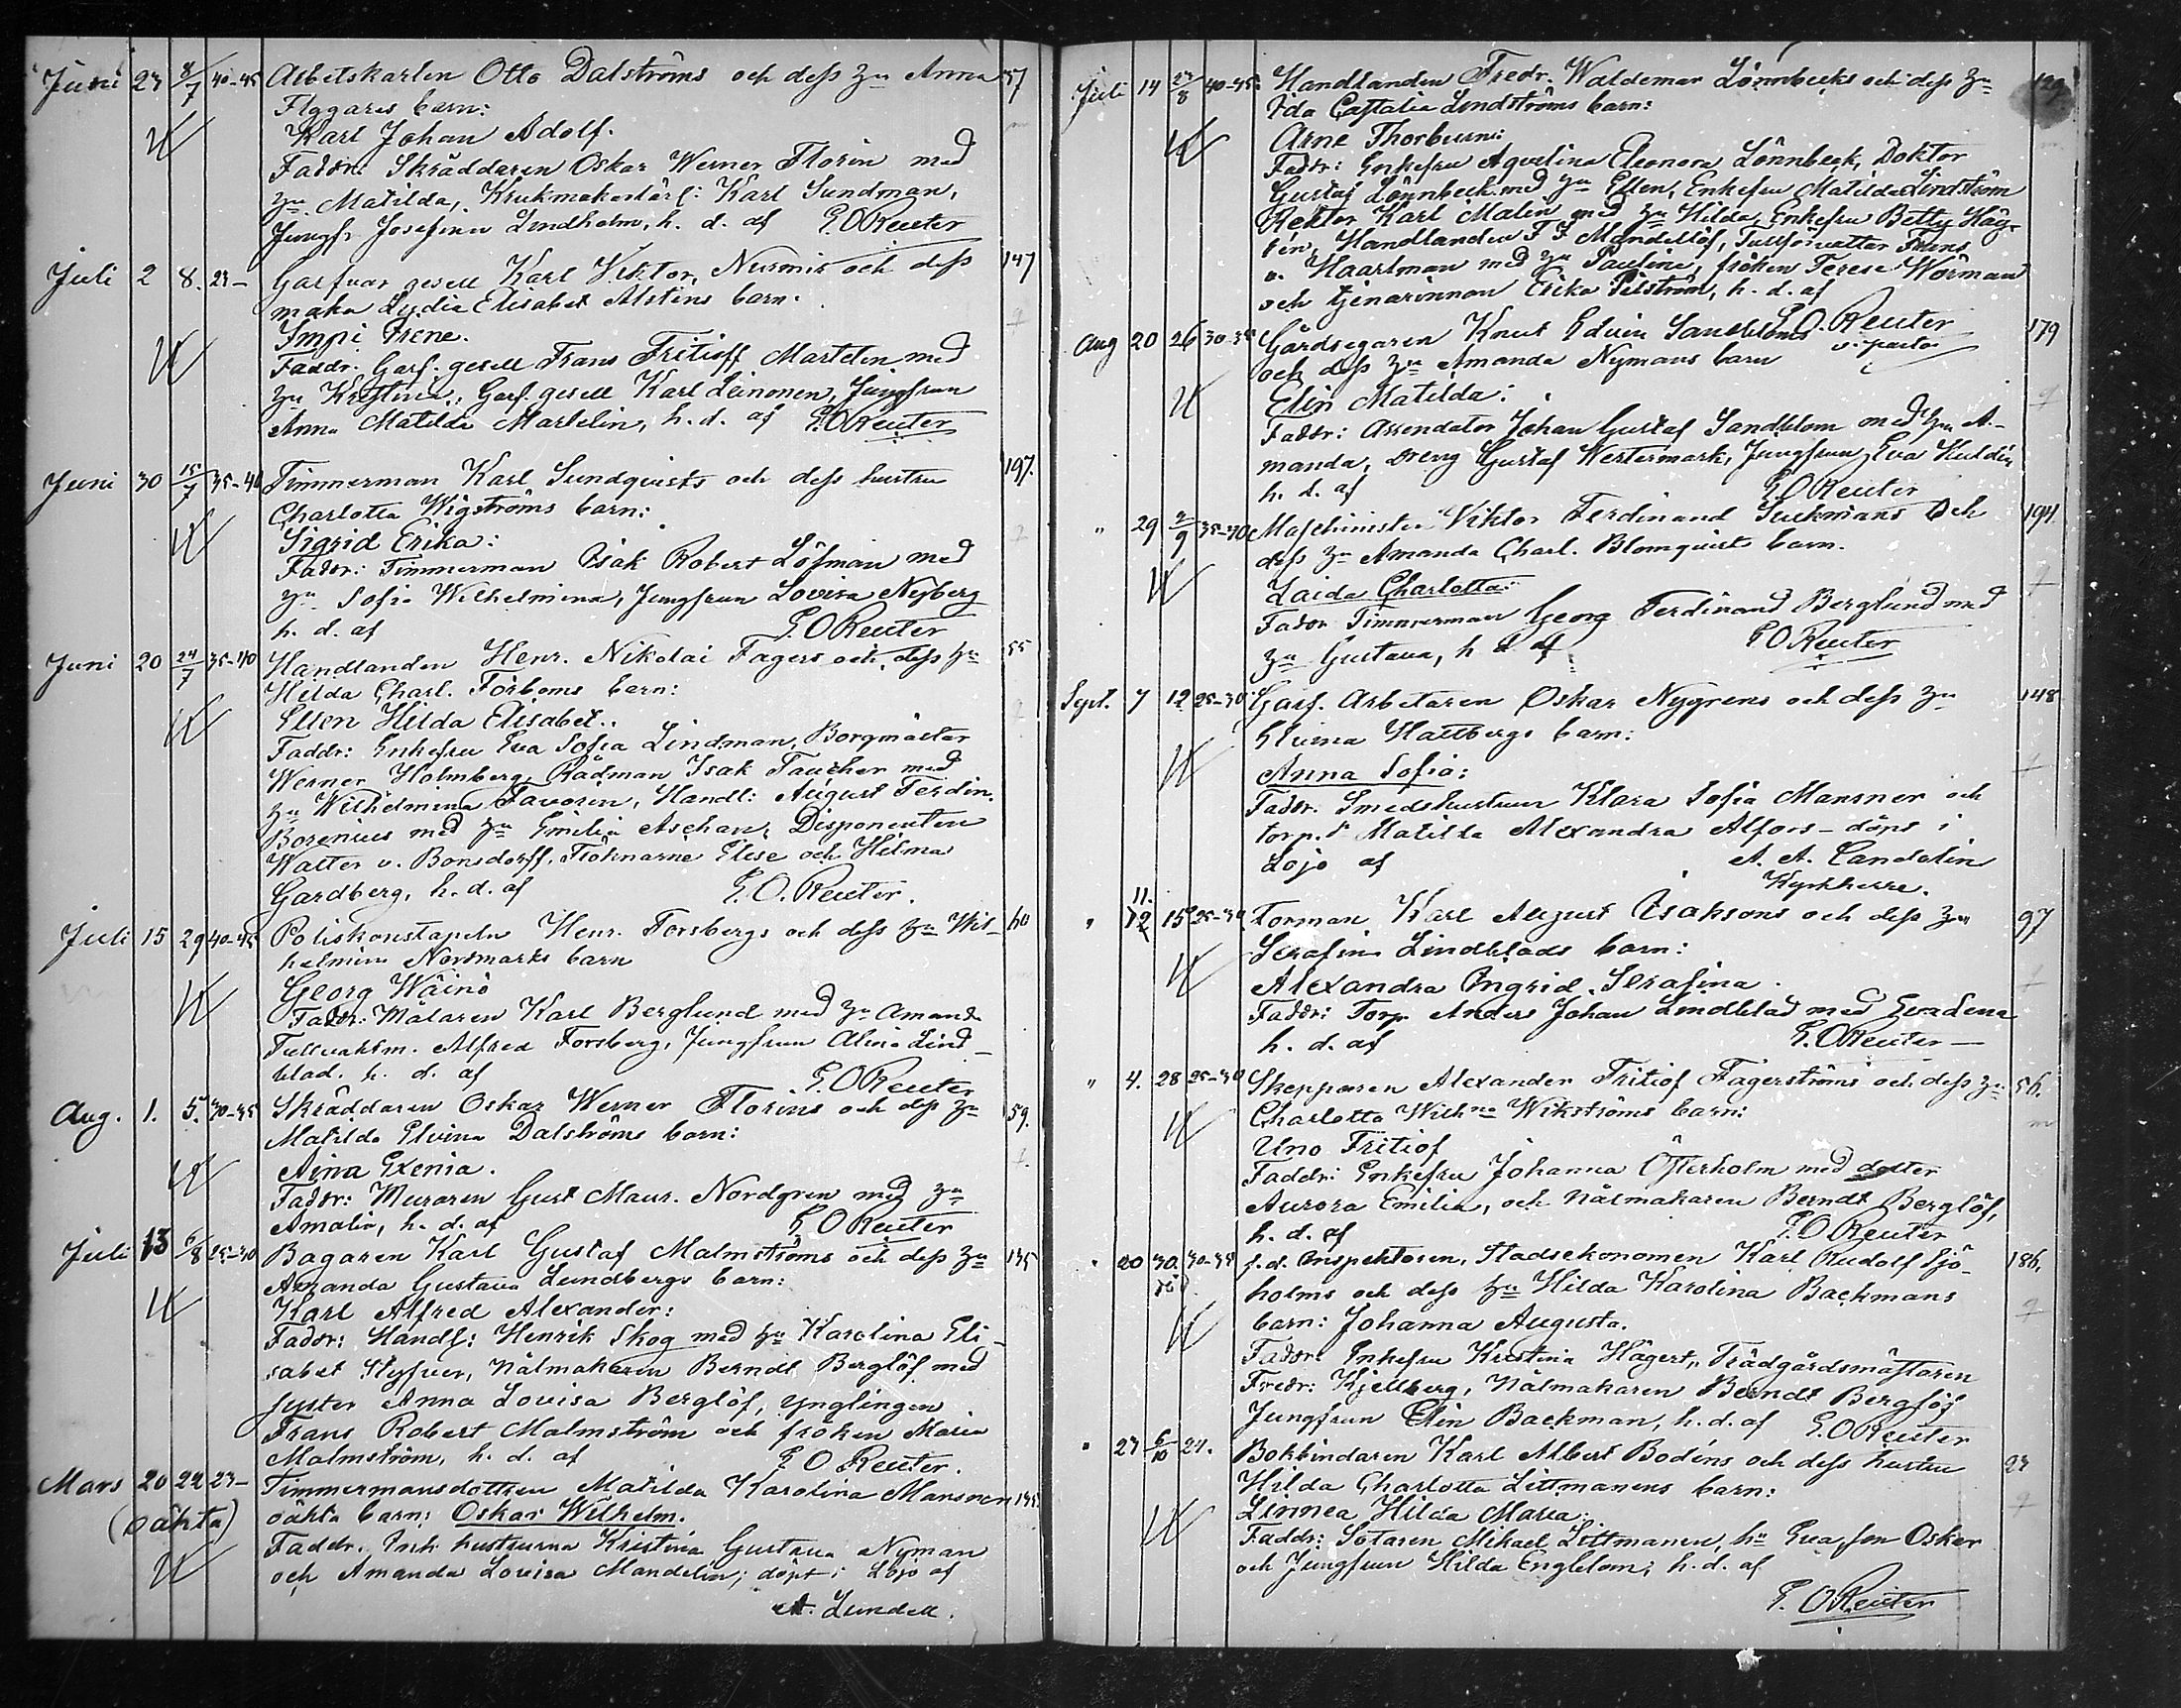 Juni 23 8/7 40-45 Arbetskarlen Otto Dalströms och dess hu Anna 57
Flggares barn:
Karl Johan Adolf.
Faddr: Skräddaren Oskar Werner Florin med
hu Matilda, Krukmakerilärl: Karl Sundman,
Jungfr Josefina Lindholm, h. d. af G. O Reuter
Juli 2 8. 23- Garfvar gesell Karl Viktor Nurmis och dess 147
maka Lydia Elisabet Alstens barn:
Impi Irene.
Faddr. Garf. gesell Frans Fritioff Martelin med
hu Kristina, Garf. gesell Karl Leinonen, Jungfrun
Anna Matilda Martelin, h. d. af G. O Reuter
Juni 30 15/7 35-40 Timmerman Karl Sundqvists och dess hustru 197.
Charlotta Wigströms barn:
Sigrid Erika:
Faddr: Timmerman Isak Robert Löfman med
hu Sofia Wilhelmina, Jungfrun Lovisa Nyberg
h. d. af G. O Reuter
Juni 20 24/7 35-40 Handlanden Henr. Nikolai Fagers och dess hu 55
Hilda Charl. Forboms barn:
Ellen Hilda Elisabet..
Faddr: Enkefru Eva Sofia Lindman, Borgmäster
Werner Holmberg, Rådman Isak Taucher med
hu Wilhelmina Favorin, Handl: August Ferdin.
Borenius med hu Emilia Aschan, Disponenten
Walter v. Bonsdorff, Fröknarne Elise och Hilma
Gardberg, h. d. af G. O. Reuter.
Juli 15 29 40-45 Poliskonstapeln Henr. Forsbergs och dess hu Wil- 60
helmina Nordmarks barn
Georg Wäinö
Faddr: Målaren Karl Berglund med hu Amanda
Tullvaktm. Alfred Forsberg, Jungfrun Alina Lind-
blad. h. d. af G. O Reuter
Aug. 1. 5. 30-35 Skräddaren Oskar Werner Florins och dess hu 59.
Matilda Elvina Dalströms barn:
Aina Exenia.
Faddr: Muraren Gust Maur. Nordgren med hu
Amalia, h. d. af G. O Reuter
Juli 13 6/8 25-30 Bagaren Karl Gustaf Malmströms och dess hu 135
Amanda Gustava Lundbergs barn:
Karl Alfred Alexander:
Faddr: Handl: Henrik Skog med hu Karolina Eli-
sabet Styfver, Nålmakaren Berndt Berglöf med
syster Anna Lovisa Berglöf, ynglingen
Frans Robert Malmström och fröken Maria
Malmström, h. d. af G O Reuter.
Mars 20 22 23- Timmermansdottren Matilda Karolina Mansner
(oäkta) oäkta barn: Oskar Wilhelm.
Faddr. Inh. hustrurna Kristina Gustava Nyman
och Amanda Lovisa Mandelin; döpt i Lojo af
A. Lundell.
129
Juli 14 24/8 40-45. Handlanden Fredr. Waldemar Lönnbecks och dess hu
Ida Castalia Lindströms barn:
Arne Thorburn:
Faddr: Enkefru Agvelina Eleonora Lönnbeck, Doktor
Gustaf Lönnbeck med hu Ellen, Enkefru Matilda Lindström
Rektor Karl Malin med hu Hilda, Enkefru Betty Häg-
rén, Handlanden F F Mandellöf, Tullförvalter Frans
v. Haartman med hu Pauline, fröken Terese Wörman
och tjenarinnan Erika Pilström, h. d. af
G. O. Reuter
v. pastor
Aug 20 26 30-35 Gårdsegaren Knut Edvin Sandbloms 179
och dess hu Amanda Nymans barn
Elin Matilda:
Faddr: Arrendator Johan Gustaf Sandblom med hu A-
manda, dreng Gustaf Westermark, Jungfrun Eva Huldin
h. d. af G. O Reuter
" 29 2/9 35-40 Maschinisten Viktor Ferdinand Suckmans och 194
dess hu Amanda Charl. Blomqvists barn.
Laida Charlotta:
Faddr Timmerman Georg Ferdinand Berglund med
hu Gustava, h d af G O Reuter
Sept. 7 12 25-30 Garf. Arbetaren Oskar Nygrens och dess hu 148
Elvina Hallbergs barn:
Anna Sofia:
Faddr. Smedshustrun Klara Sofia Mansner och
torp. dr Matilda Alexandra Alfors - döpt i
Lojo af A. A. Candolin
Kyrkherre.
11.
" 12 15 25-30 Forman Karl August Isaksons och dess hu 97
Serafina Lindblads barn:
Alexandra Ingrid Serafina.
Faddr: Torp Anders Johan Lindblad med Eva Lena
h. d. af G. O Reuter
" 4. 28 25-30 Skepparen Alexander Fritiof Fagerströms och dess hu 56.
Charlotta Wilhna Wikströms barn:
Uno Fritiof
Faddr: Enkefru Johanna Österholm med dotter
Aurora Emilia, och Nålmakaren Berndt Berglöf,
h. d. af G. O Reuter
" 20 30. 30-35 f.d. Inspektoren, Stadsekonomen Karl Rudolf Sjö- 186.
holms och dess hu Hilda Karolina Backmans
barn: Johanna Augusta.
Faddr: Enkefru Kristina Hägert, Trädgårdsmästaren
Fredr: Kjellberg, Nålmakaren Berndt Berglöf
Jungfrun Elin Backman, h. d. af G. O Reuter
" 27 6/10 24. Bokbindaren Karl Albert Bodéns och dess hustru 27
Hilda Charlotta Littmanens barn:
Linnea Hilda Maria.
Faddr: Sotaren Mikael Littmanen, hu Eva, son Oskar
och Jungfrun Hilda Engblom; h. d. af
G. O Reuter